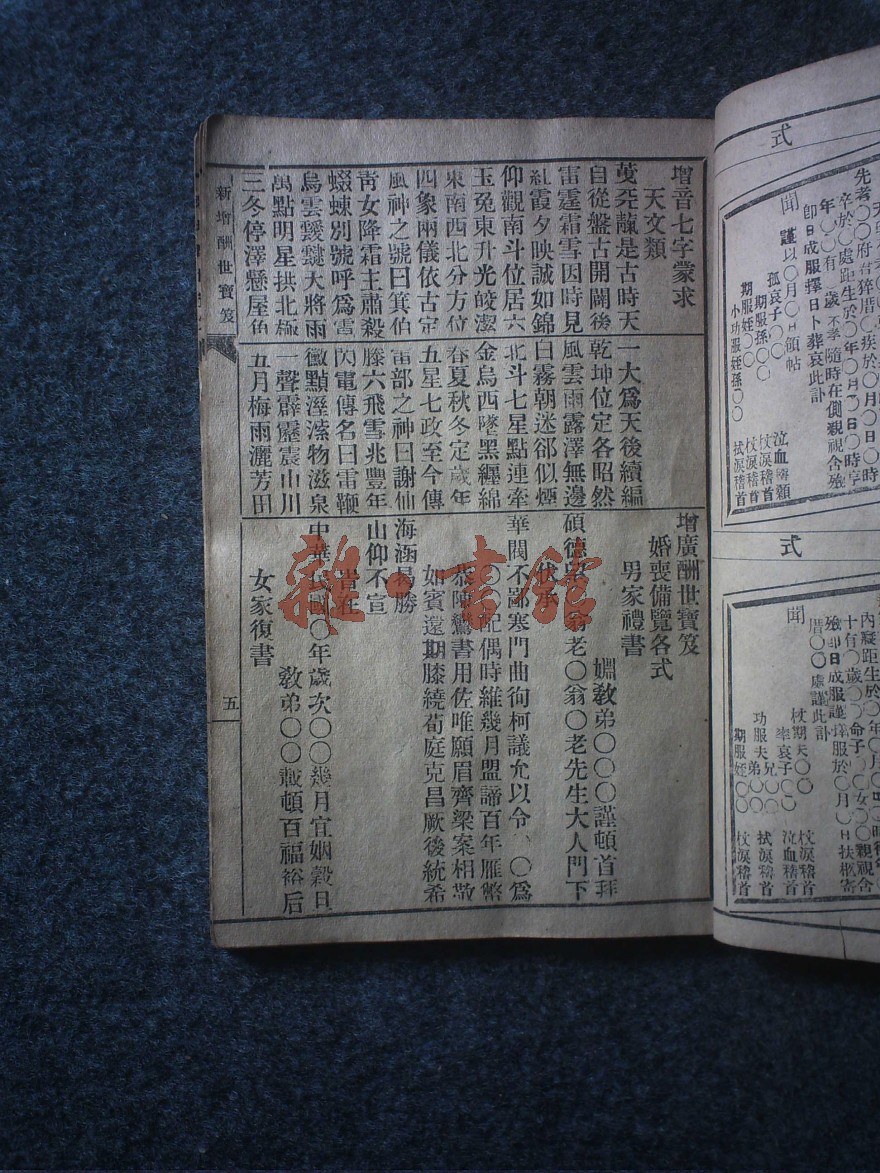 式
先考〇〇府君
卒於〇處距生於〇年〇月〇日〇時享
年〇〇有〇歲不孝隨時在側親視含殮
卽日成服擇日卜葬哀此訃
聞
謹以〇月〇日領帖
孤哀子〇〇
期服孫〇〇
期服姪〇〇
小功服姪孫〇〇
泣血稽顙
杖淚稽首
杖淚稽首
拭淚稽首
式
殮卽日成服謹擇服於〇月〇日扶柩寄
厝〇〇處謹此訃
聞
杖期夫〇〇
率哀子〇〇
功服夫兄弟〇〇
期服姪〇〇
杖淚稽首
泣血稽首
拭淚稽首
杖淚稽首
增音七字蒙求
天文類
是古時天
自從盤古開闢後
雷霆霜雪因時見
紅霞夕映誠如錦
仰觀南斗位居六
玉兔東升光皎潔
東南西北分方位
四象兩儀依古定
風神之號曰箕伯
靑女降霜主肅殺
蝃蝀別號呼爲
烏雲靉靆大將雨
萬點明星拱北極
三冬停澤懸屋角
一大爲天後續編
乾坤位定各昭然
風雲雨露澤無邊
白霧朝迷郤似煙
北斗七星點連牽
金烏西墜黑纏綿
春夏秋冬定歲年
五星七政至今傳
雷部之神曰謝仙
滕六飛雪兆豐年
閃電傳名曰雷鞭
黴點溼滀物滋泉
一聲霹靂震山川
五月梅雨灑芳田
增廣酬世寶笈
婚喪備覽各式
男家禮書
姻敎弟〇〇〇謹頓首拜
碩德 翁老〇翁〇老先生大人門下
伏承
華閥不鄙寒門曲徇柯議允以令 〇爲
〇〇配偶時維幾月盟諦百年雁幣
恭陳鸞書用佐唯願眉齊梁案相敬
如賓遠期膝繞荀庭克昌厥後統希
海涵曷勝
山仰不宣
中華民國〇年歲次〇〇幾月宜姻穀旦
敎弟〇〇 頓百福裕后
女家復書
新增酬世寶笈
五
雜·書館